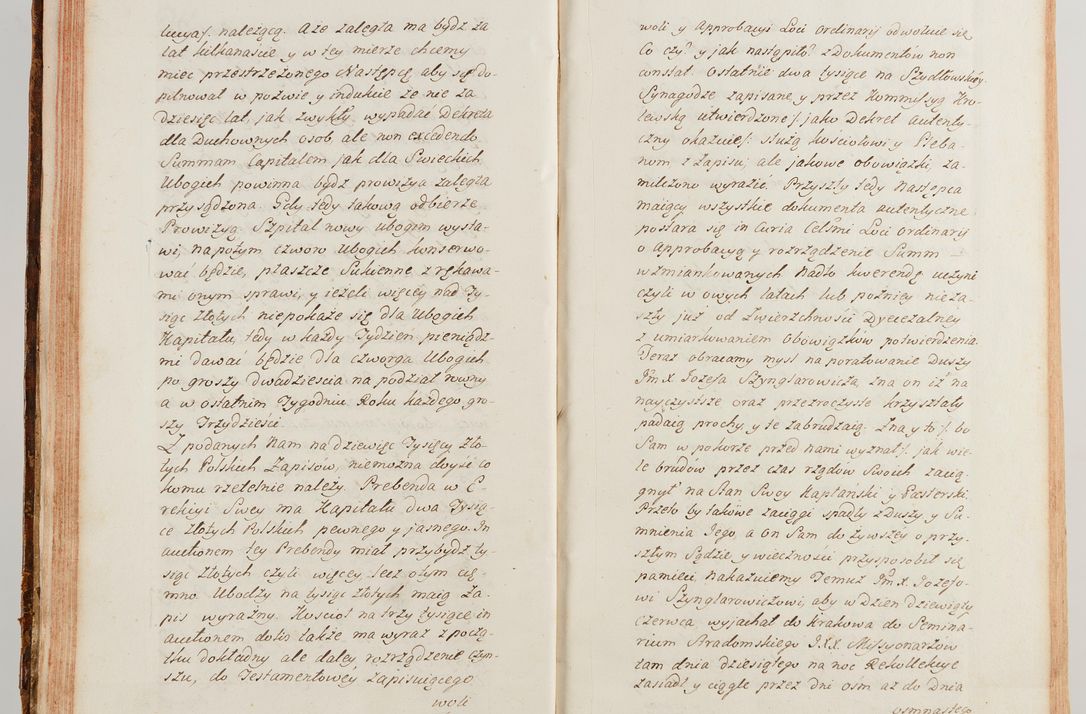 należącą. Aże zaległa ma bydz za
lat kilkanascie y w tey mierze chcemy
miec przestrzezonego Następcę, aby się do-
pilnował w pozwie y indukcie ze nie za
dziesięc lat, jak zwykły wypadać Dekreta
dla Duchownych osob, ale non excedendo
Summam Capitalem, jak dla Swieckich
Ubogich powinna bydz prowizya zaległa
przysądzona. Gdy tedy takową odbierze
Prowizyą Szpital nowy ubogim wysta-
wi, napotym czworo Ubogich konserwo-
wać będzie, płaszcze Sukienne z rękawa-
mi onym sprawi, y jeżeli więcey nad Ty-
siąc Złotych niepokaże się dla Ubogich
Kapitału, tedy w każdy Tydzien pieniądz-
mi dawać będzie dla czworga Ubogich
po groszy dwadziescia na podział rowny
a w ostatnim Tygodniu Roku każdego gro-
szy Trzydziesci.
Z podanych Nam na dziewięc Tysięcy Zło-
tych Polskich Zapisow, niemożna doyść co
komu rzetelnie należy. Prebenda w E-
rekcyi Swey ma Kapitału dwa Tysią-
ce Złotych Polskich pewnego y jasnego. In
auctionem tey Prebendy miał przybydz ty-
siąc Złotych czyli więcey, lecz o tym cie-
mno. Ubodzy na tysiąc złotych maią Za-
pis wyrażny. Kosciół na trzy tysiące in
auctionem także ma wyraz z począ-
tku dokładny ale daley rozrządzenie Czyn-
szu, do Testamentowey Zapisuiącego
woli
woli y Approbacyi Loci ordinarij odwołuie się
Co czy y jak nastąpiło? z Dokumentow non
constat. Ostatnie dwa tysiące na Szydłowskiey
Synagodze zapisane y przez Kommissyą Kro-
lewską utwierdzone /: jako Dekret autenty-
czny okazuie :/ służą kosciołowi y Pleba-
nom z Zapisu, ale jakowe obowiązki, za-
milczono wyrazić. Przyszły tedy Następca
maiący wszystkie dokumenta autentyczne
postara się in Curia Celsmi Loci ordinarij
o Approbacyą y rozrządzenie Summ
wzmiankowanych. Nadto kwerendę uczyni
czyli w owych latach lub poźniey nieza-
szły już od Zwierzchności Dyecezalney
z umiarkowaniem Obowiązkow potwierdzenia.
Teraz obracamy mysl na poratowanie Duszy
Jm X Jozefa Szynglarowicza, zna on iż na
nayczystsze oraz przezroczyste krzyształy
padaią prochy y te zabrudzaią. Zna y to /: bo
Sam w pokorze przed nami wyznał :/ jak wie-
le brudow przez czas rządow Swoich zacią-
gnył na Stan Swoy Kapłański y Pasterski.
Przeto by takowe zaciągi spadły z Duszy y Su-
mnienia Jego, a on Sam do żywszey o przy-
szłym Sądzie y wieczności przysposobił się
pamięci Nakazuiemy Temuż Jm X. Jozefo-
wi Szynglarowiczowi, aby w Dzien dziewiąty
Czerwca wyjachał do Krakowa do Semina-
rium Stradomskiego JXX. Missyonarzow
tam dnia dziesiątego na noc Rekollekcye
zasiadł, y ciągle przez dni osm aż do Dnia
osmnastego